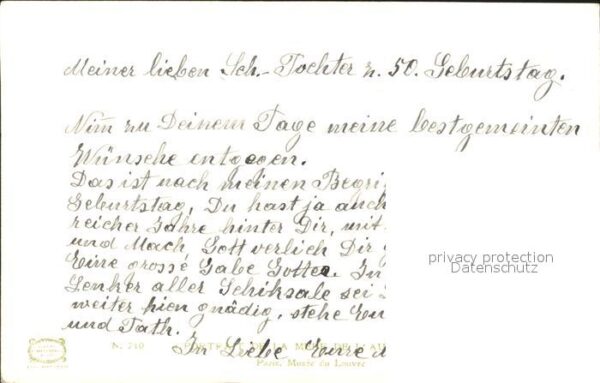 Meiner lieben Sch.-Tochter z. 50. Geburtstag.
Nim zu Deinem Tage meine bestgemeinten
Wünsche entgegen.
Das ist nach meinen Begri
Geburtstag, Du hast ja auch
reicher Jahre hinter Dir, mit
und Mach Gott verlich Dir
Eine grosse Gabe Gottes. In
Lenker aller Schiksale sei
weiter hien gnädig, stehe
und Tath.
In Liebe Eure
privacy protection
Datenschutz
N. 710 PORTRAIT DE LA MÈRE DE L'AU
Paris, Musée du Louvre